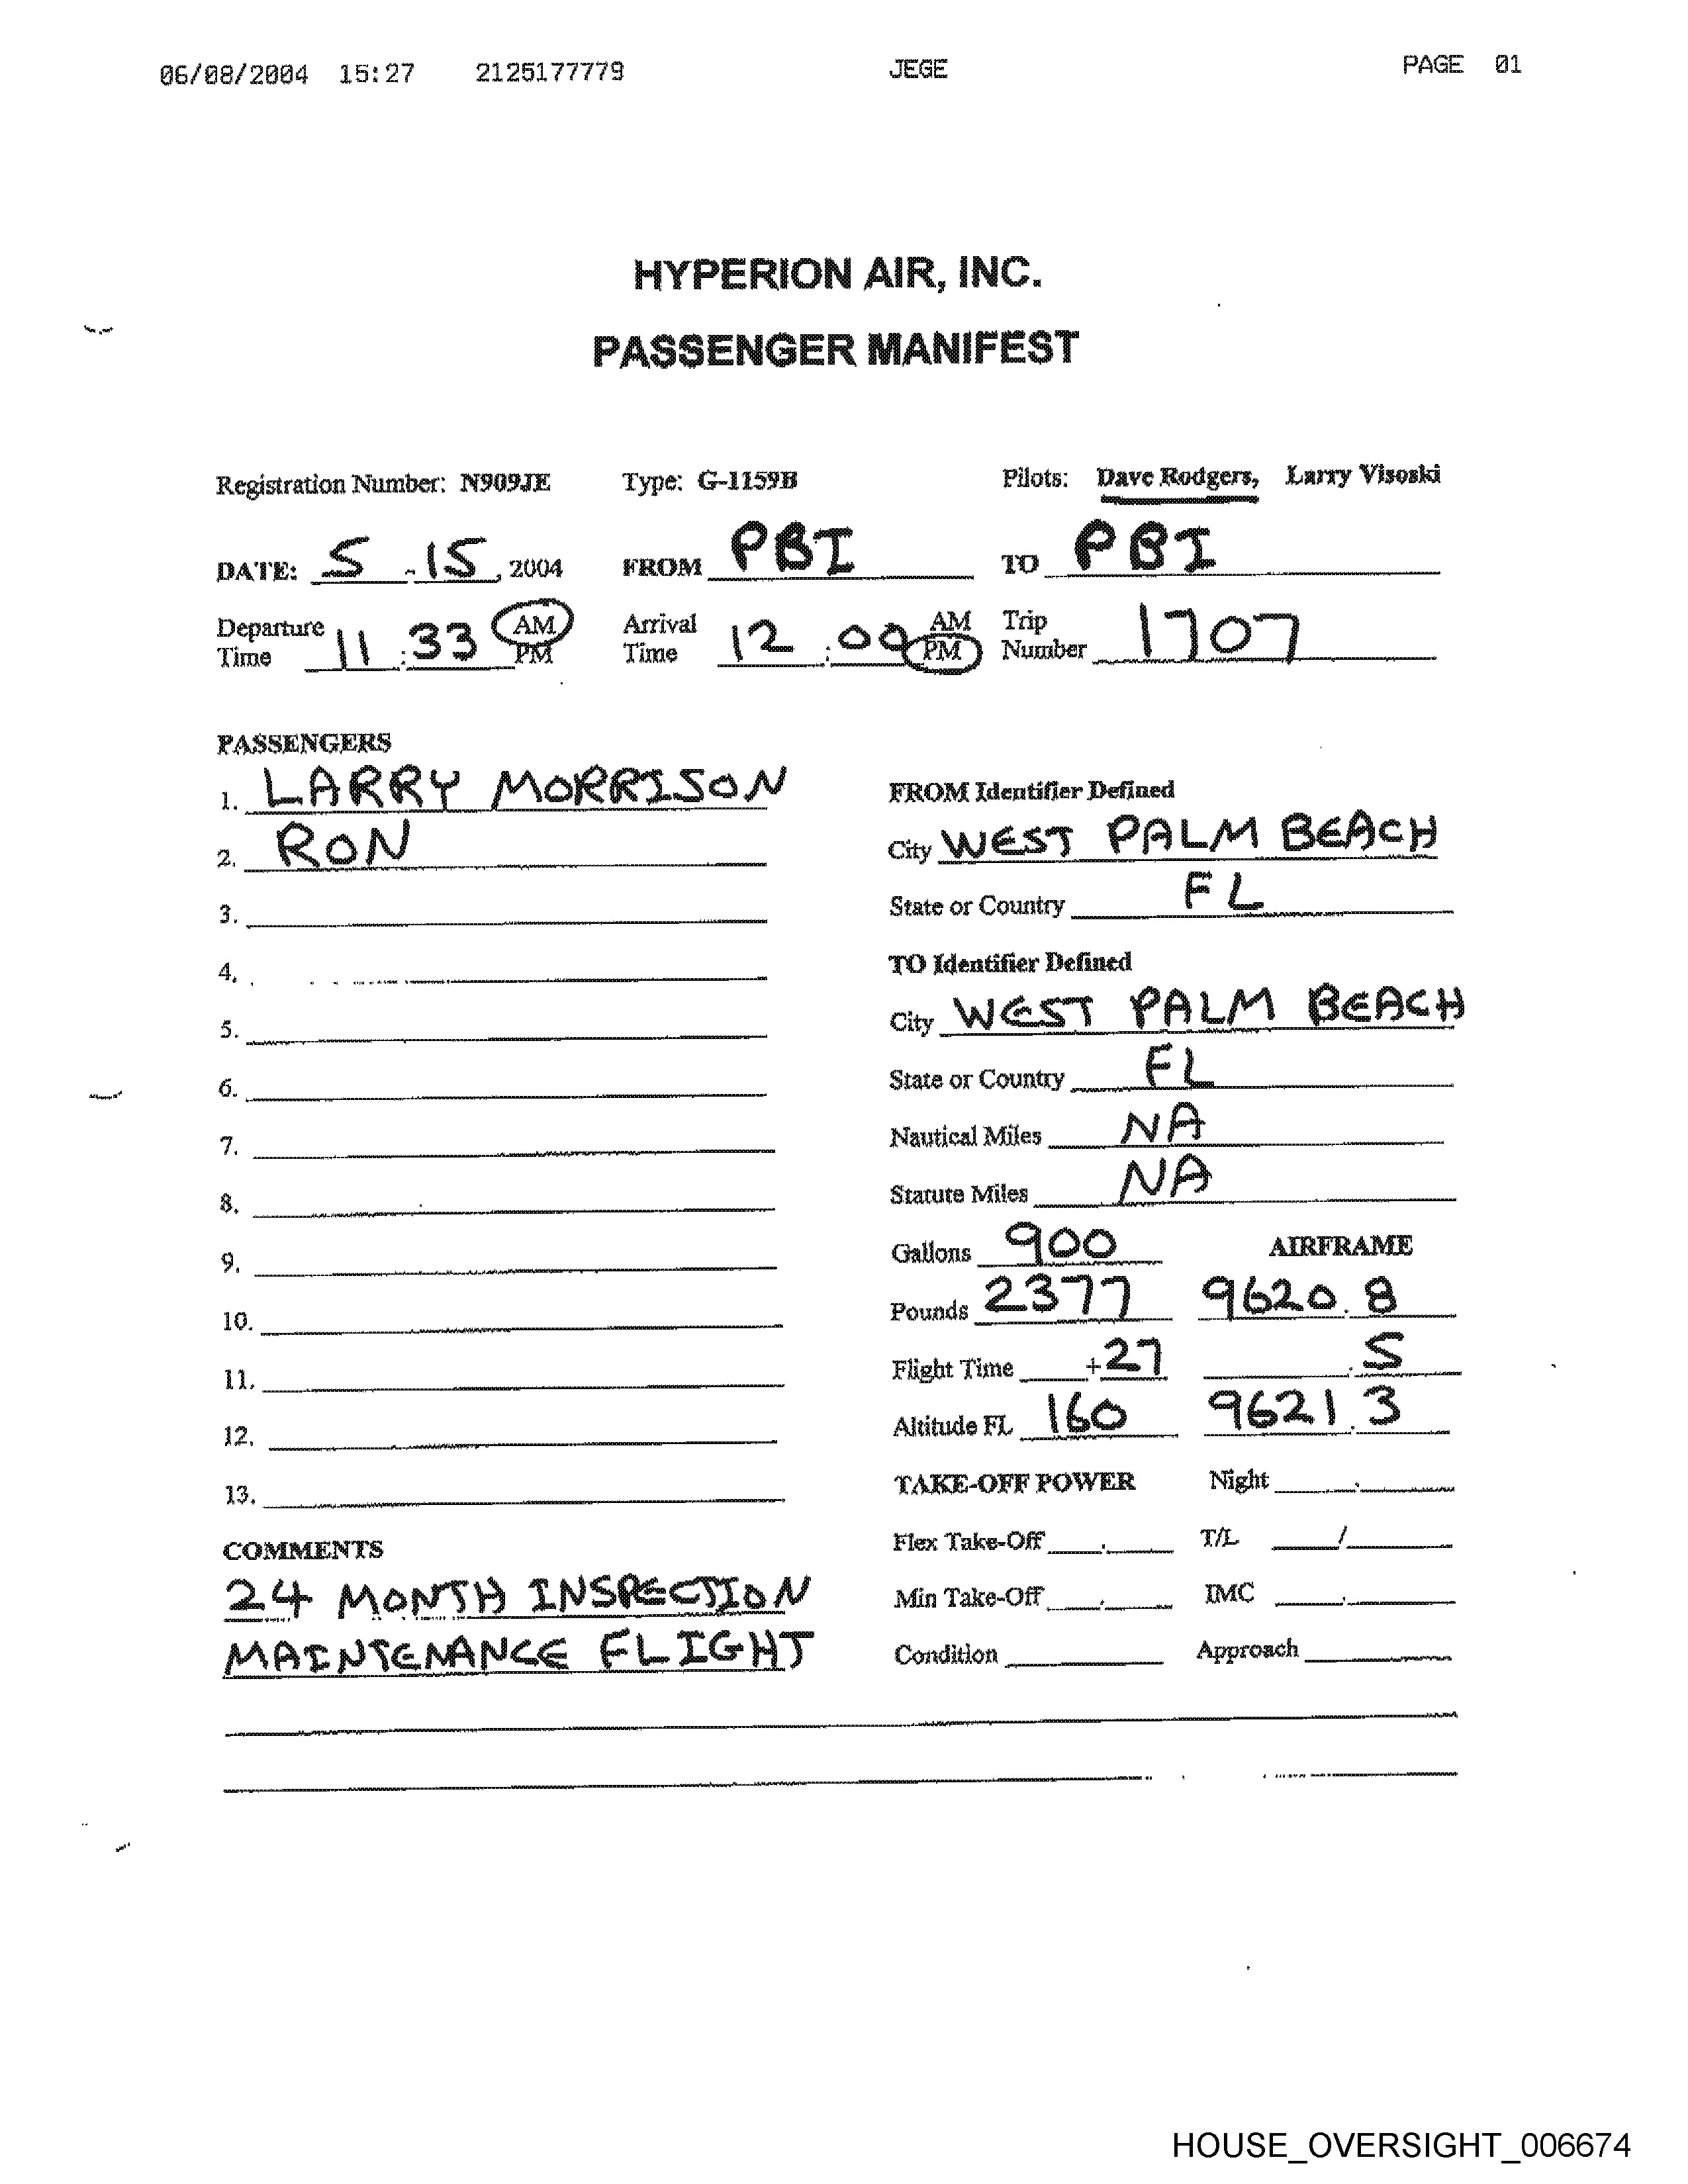 06/08/2004 15:27 2125177779 JEGE PAGE 01
HYPERION AIR, INC.
PASSENGER MANIFEST
Registration Number: N909JE Type: G-1159B Pilots: Dave Rodgers, Larry Visoski
DATE: 5-15, 2004 FROM PBI TO PBI
Departure Time 11:33 AM PM Arrival Time 12:00 AM PM Trip Number 1707
PASSENGERS
1. LARRY MORRISON
2. RON
3.
4.
5.
6.
7.
8.
9.
10.
11.
12.
13.
COMMENTS
24 MONTH INSPECTION
MAINTENANCE FLIGHT
FROM Identifier Defined
City WEST PALM BEACH
State or Country FL
TO Identifier Defined
City WEST PALM BEACH
State or Country FL
Nautical Miles NA
Statute Miles NA
Gallons 900 AIRFRAME
Pounds 2377 9620.8
Flight Time +27 .5
Altitude FL 160 9621.3
TAKE-OFF POWER Night .
Flex Take-Off . T/L /
Min Take-Off . IMC .
Condition Approach
HOUSE_OVERSIGHT_006674